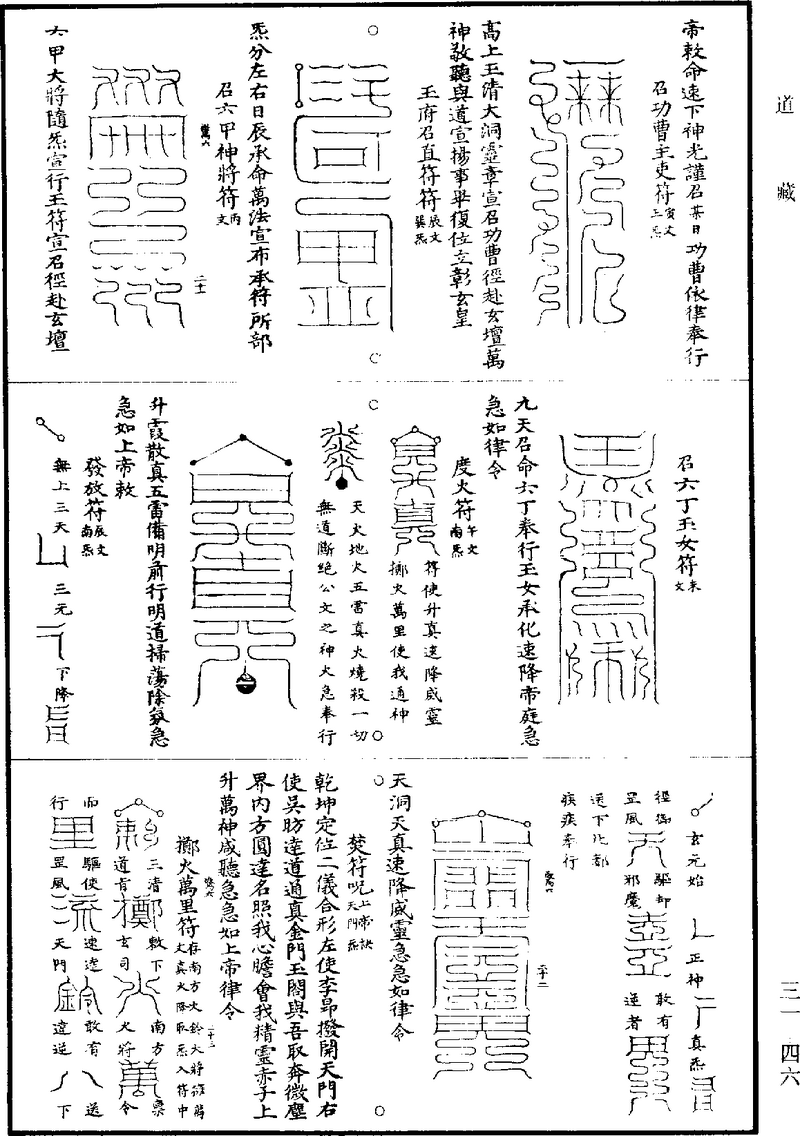 道藏
三一 四六
帝敕命速下神光謹召某日功曹依律奉行
召功曹主吏符寅文三炁
高上玉清大洞靈章宣召功曹徑赴玄壇萬
神敬聽與道宣揚事畢復位立彰玄皇
玉府召直符符辰文巽炁
炁分左右日辰承命萬法宣布承符所部
召六甲神將符丙文
二十一
六甲大將隨炁宣行玉符宣召徑赴玄壇
召六丁玉女符未文
九天召命六丁奉行玉女承化速降帝庭急
急如律令
度火符午文南炁
符使升真速降威靈
擲火萬里使我通神
天火地火五雷真火燒殺一切
無道斷絕公文之神火急奉行
升霞散真五雷備明前行明道掃蕩除氛急
急如上帝敕
發放符辰文南炁
無上三天
三元
下降
玄元始
正神
真炁
徑衝
罡風
驅却
邪魔
敢有
逆者
送下北都
疾疾奉行
二十二
天洞天真速降威靈急急如律令
焚符呪上帝訣天門炁
乾坤定位二儀合形左使李昴撥開天門右
使吳昉達道通真金門玉閤與吾取奔微塵
界內方圓達名照我心膽會我精靈赤子上
升萬神咸聽急急如上帝律令
擲火萬里符
三清
道旨
敕下
玄司
南方
火將
稟令
而行
驅使
罡風
速達
天門
敢有
違逆
送下